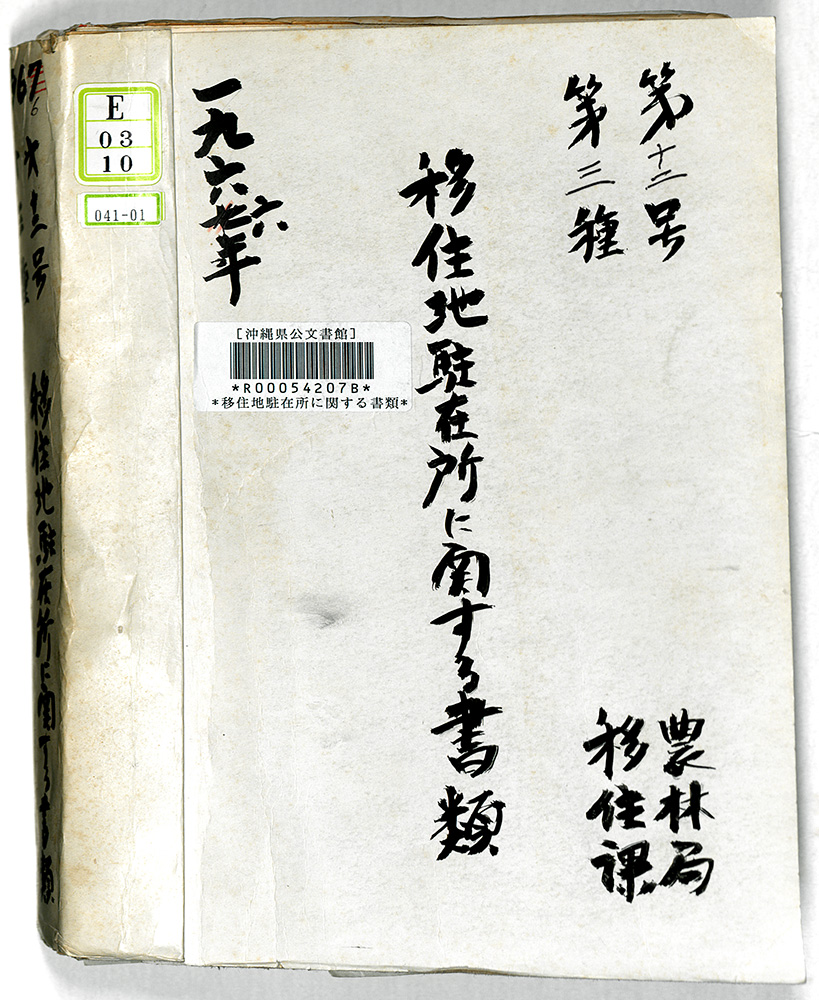 第十二号
第三種
移住地駐在所に関する書類
農林局
移住課
一九六七年
六
E
03
10
041-01
[沖縄県公文書館]
*R00054207B*
*移住地駐在所に関する書類*
67
6
号
移住地駐在所に関する書類